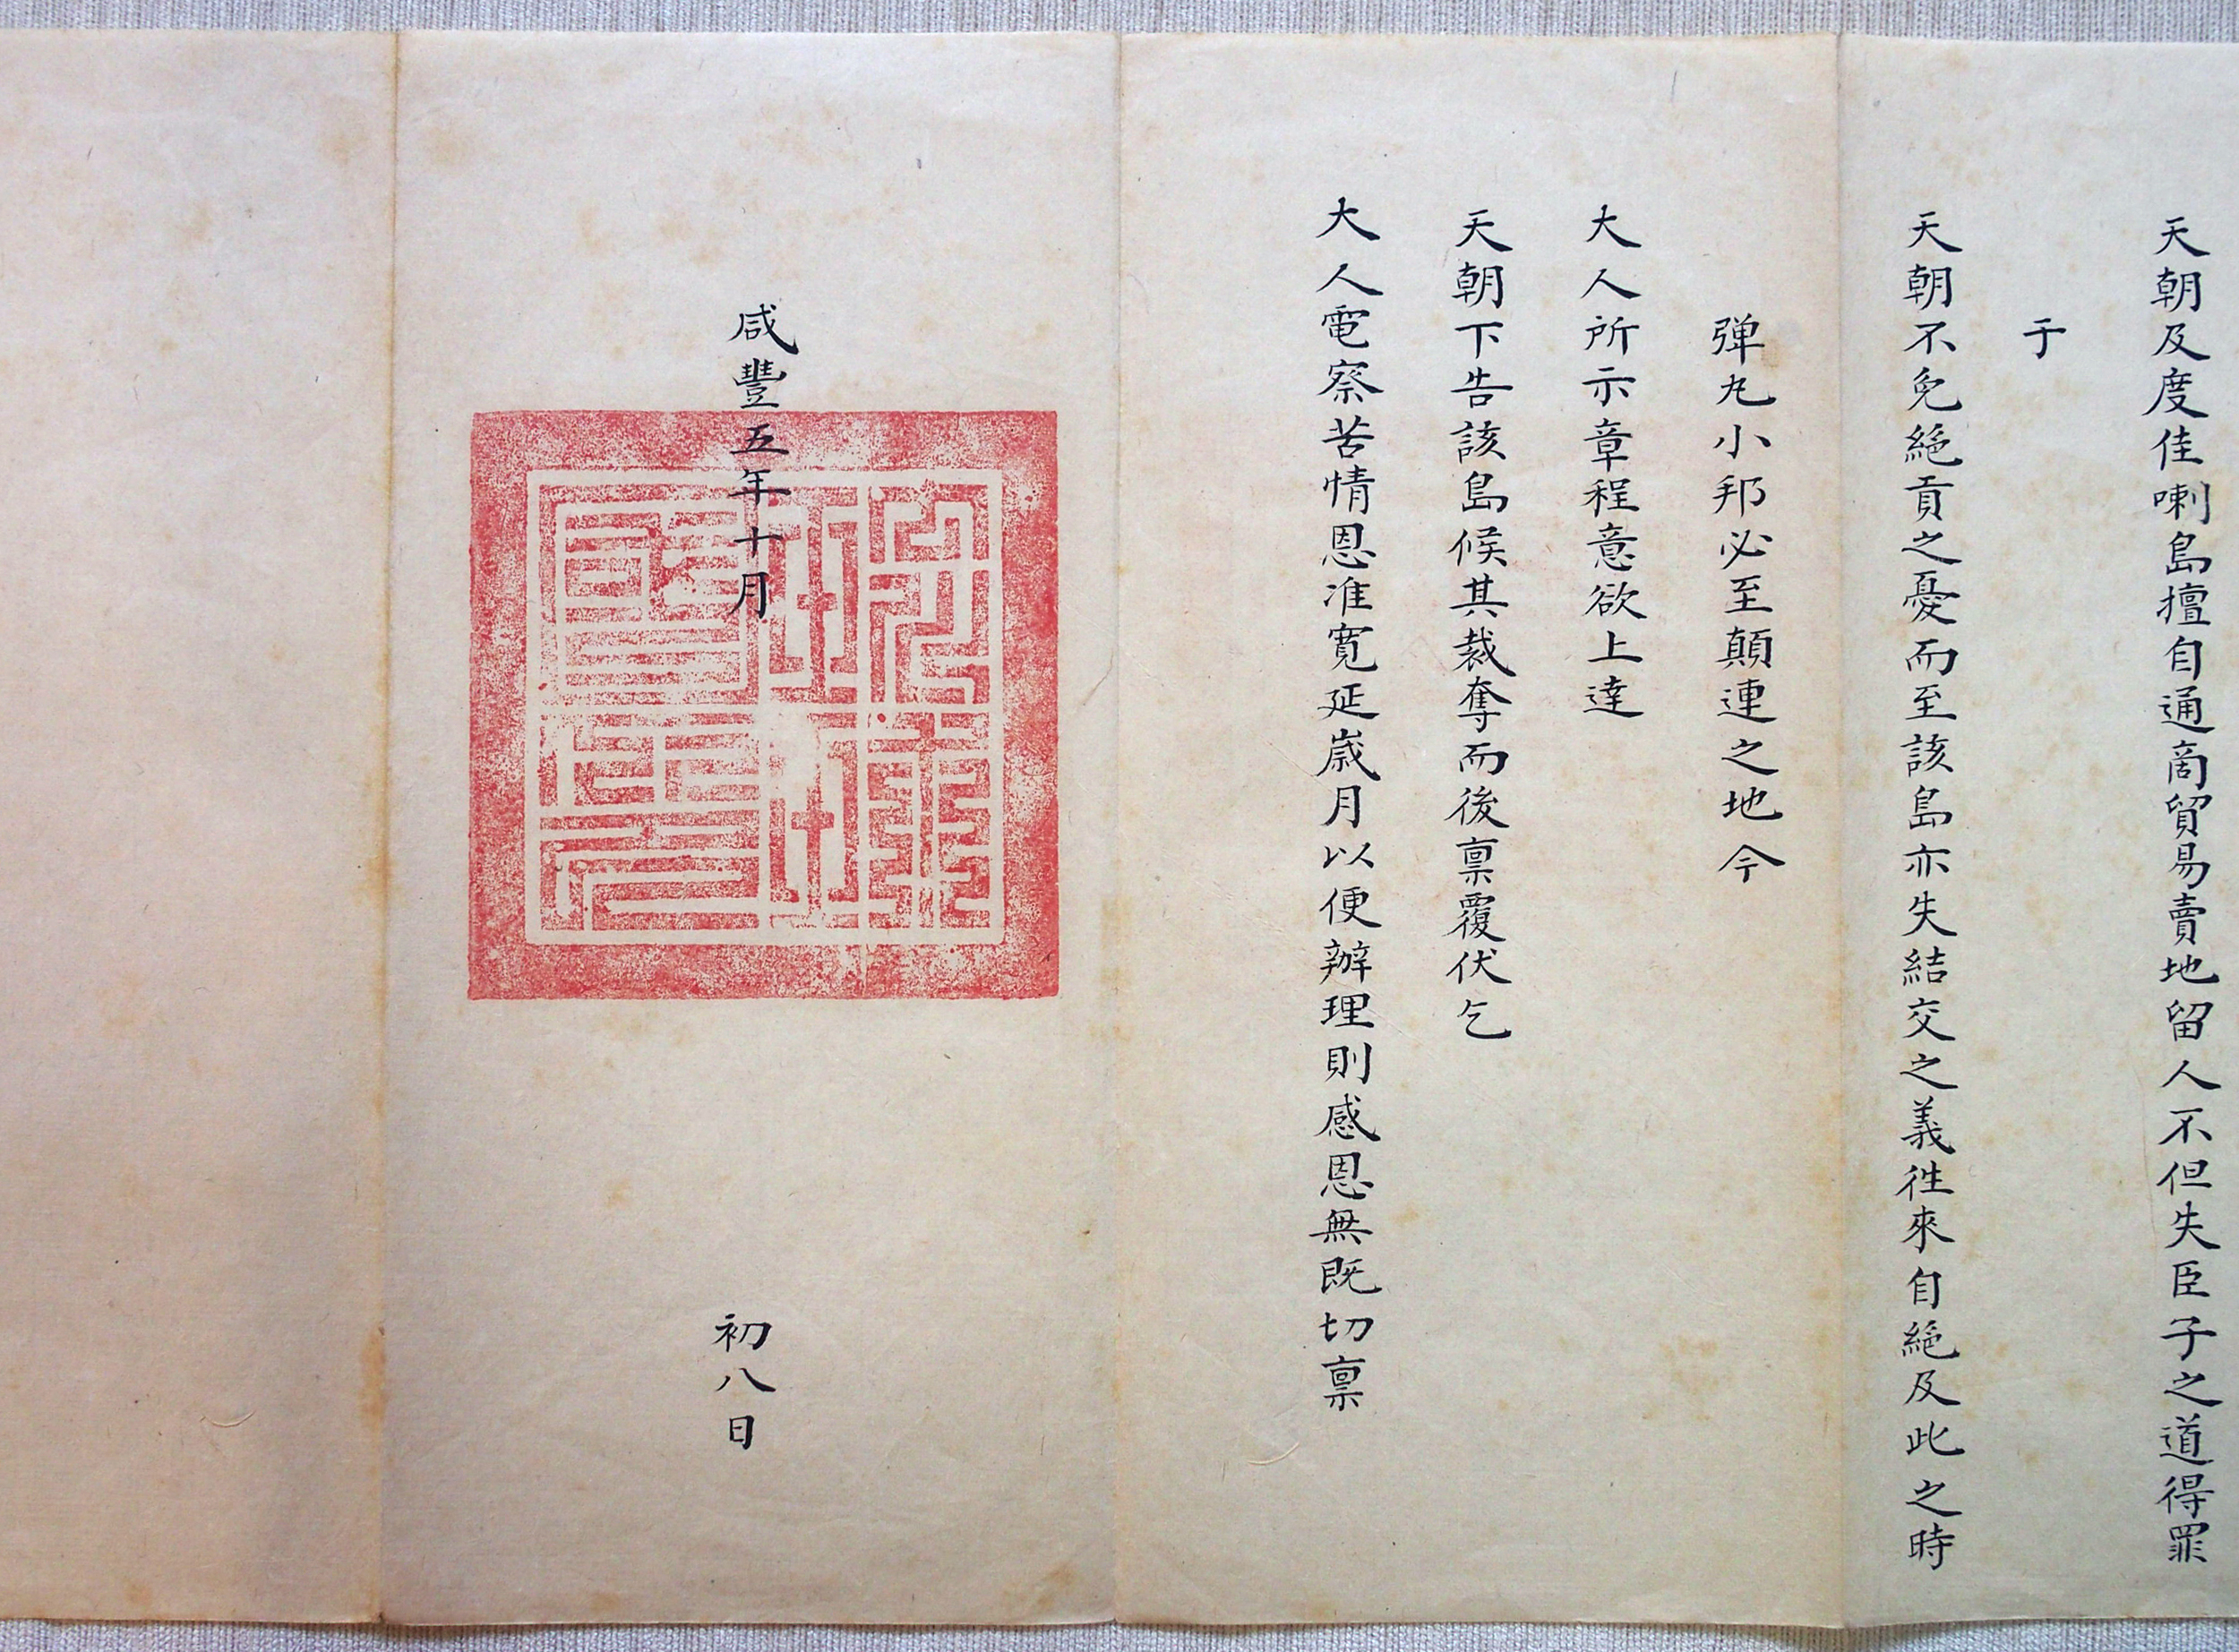 天朝及度佳喇島擅自通商貿易賣地留人不但失臣子之道得罪
于
天朝不免絕貢之憂而至該島亦失結交之義徃來自絕及此之時
弹丸小邦必至顛連之地今
大人所示章程意欲上達
天朝下告該島候其裁奪而後禀覆伏乞
大人電察苦情恩准寛延歳月以便辦理則感恩無既切禀
咸豐五年十月
初八日